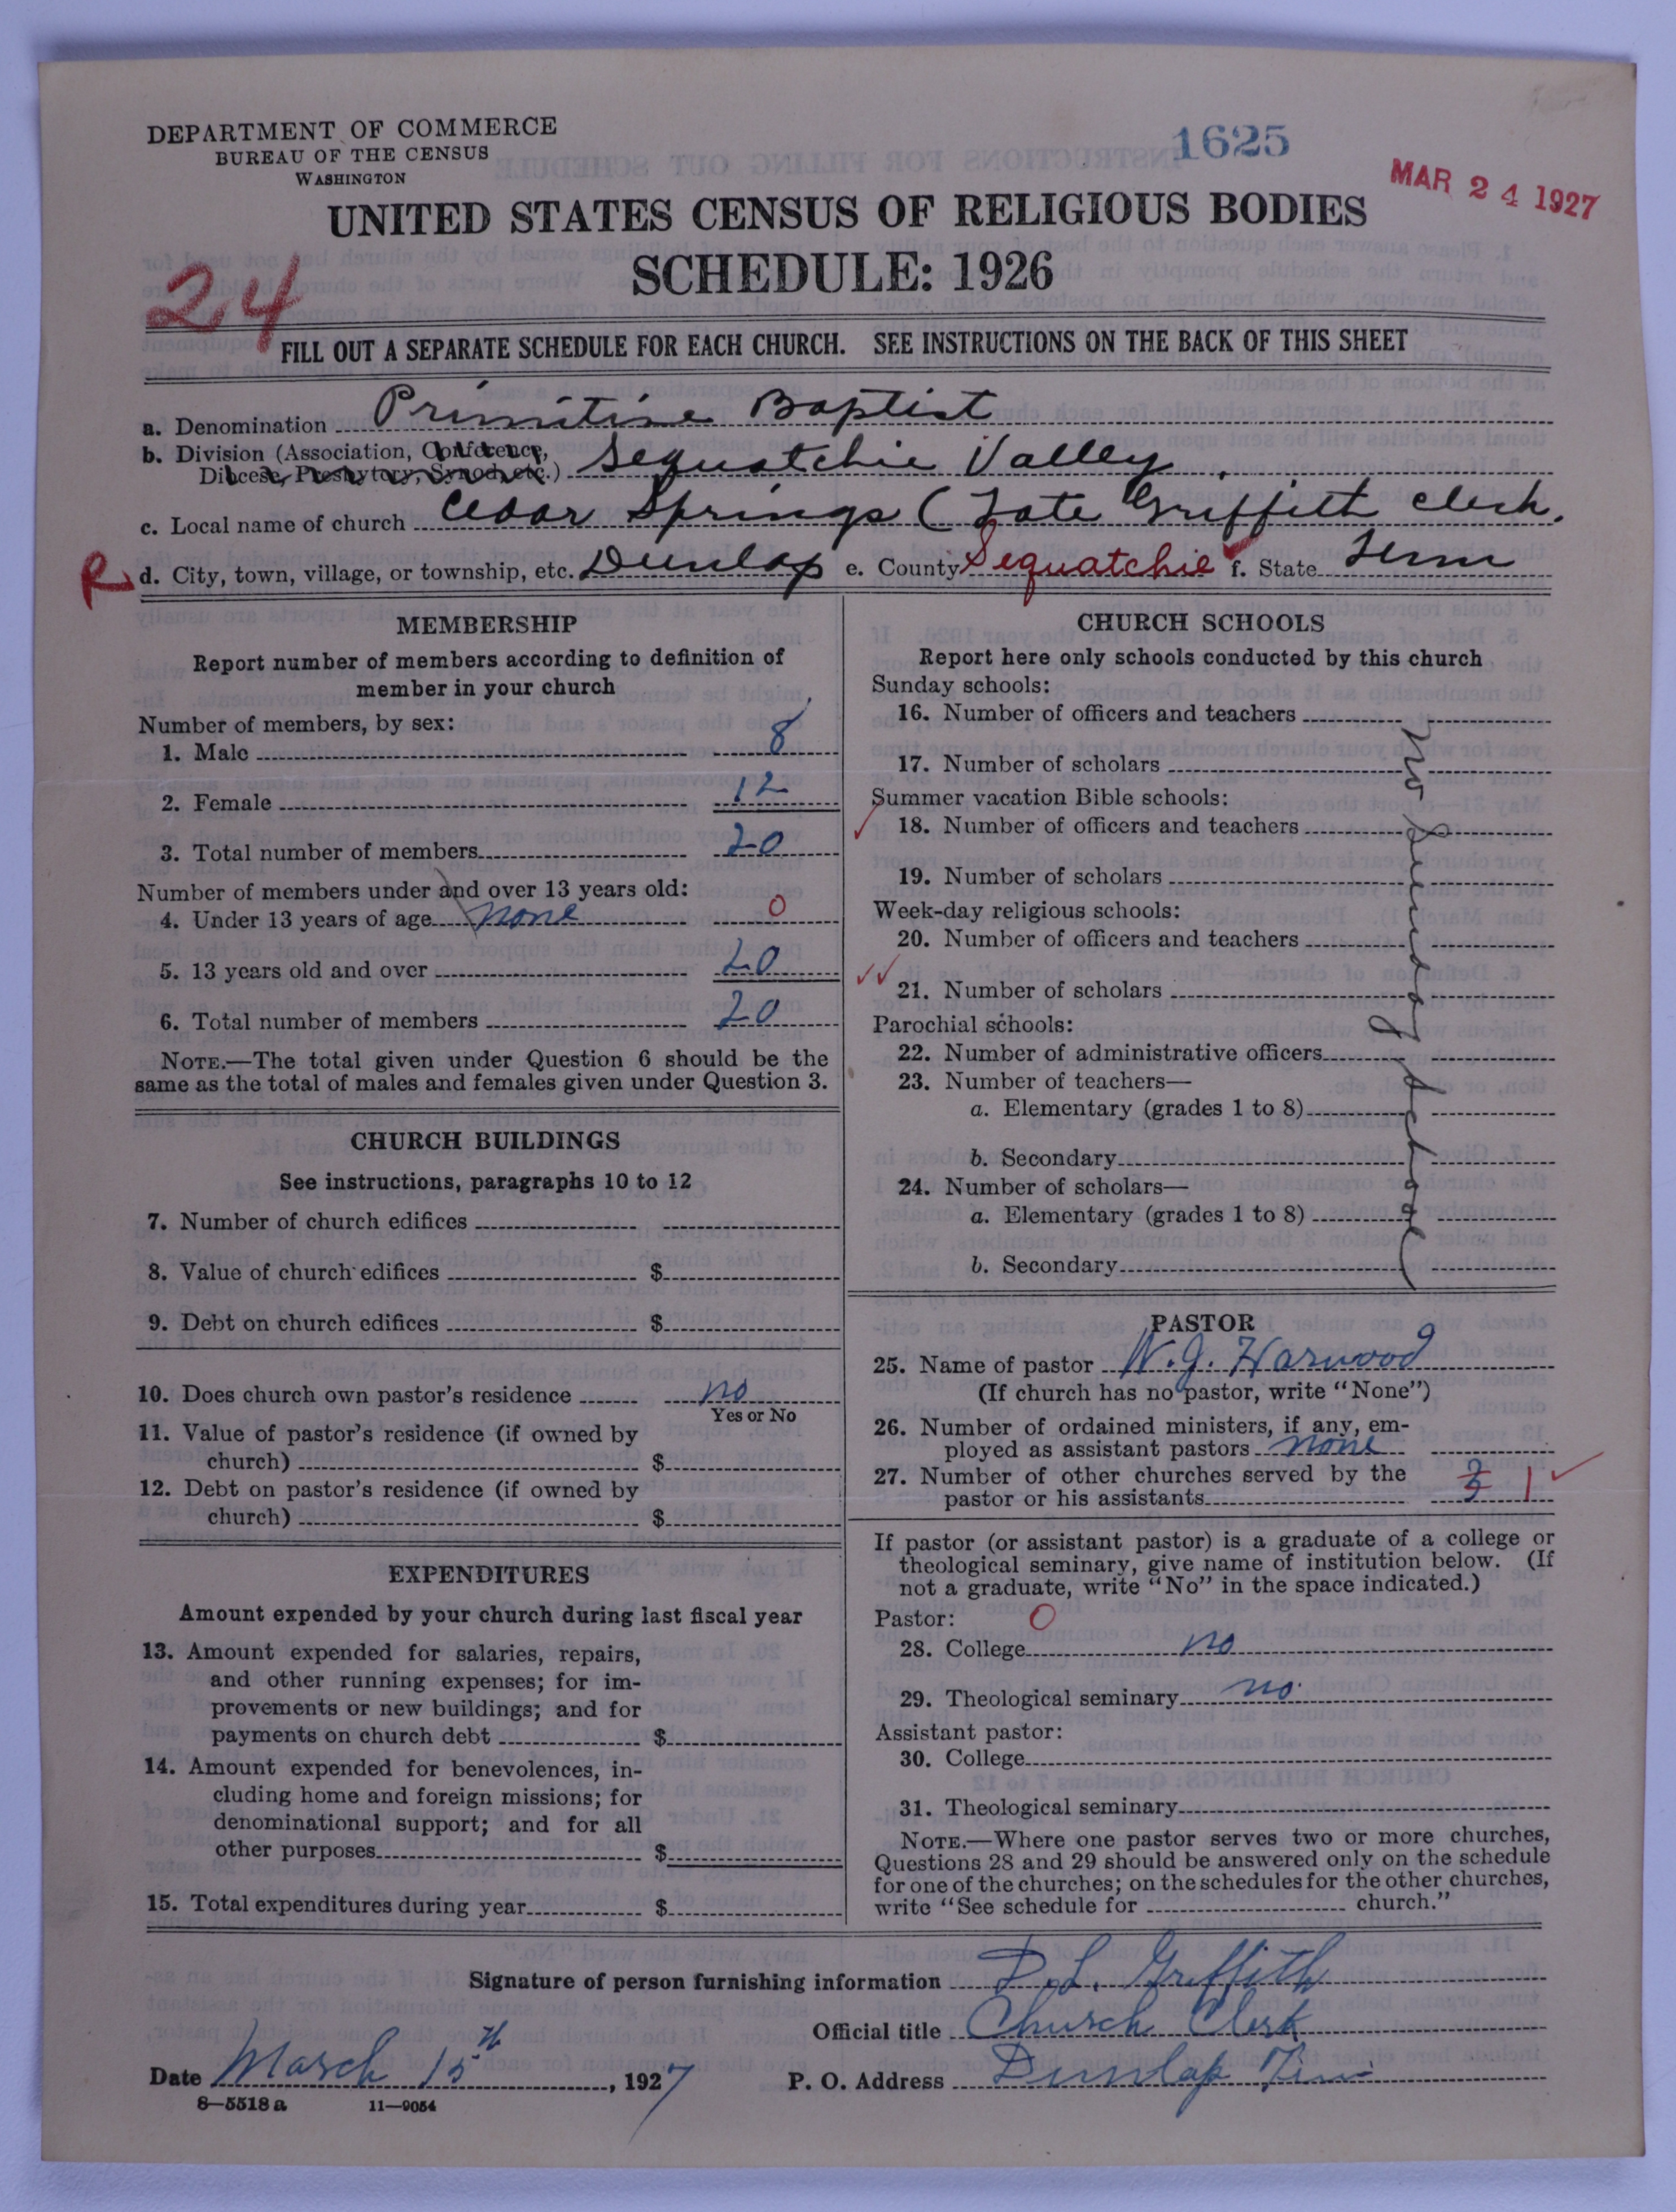 DEPARTMENT OF COMMERCE
BUREAU OF THE CENSUS
WASHINGTON
1625
MAR 24 1927
UNITED STATES CENSUS OF RELIGIOUS BODIES
SCHEDULE: 1926
24
FILL OUT A SEPARATE SCHEDULE FOR EACH CHURCH. SEE INSTRUCTIONS ON THE BACK OF THIS SHEET
a. Denomination Primitive Baptist
b. Division (Association, Conference,
Diocese, Presbytery, Synod, etc.) Sequatchie Valley
c. Local name of church Cedar Springs ( Griffith Clerk.
R d. City, town, village, or township, etc. Dunlap e. County Sequatchie f. State Tenn
MEMBERSHIP
Report number of members according to definition of
member in your church
Number of members, by sex:
1. Male 8
2. Female 12
3. Total number of members 20
Number of members under and over 13 years old:
4. Under 13 years of age none 0
5. 13 years old and over 20
6. Total number of members 20
NOTE.—The total given under Question 6 should be the
same as the total of males and females given under Question 3.
CHURCH BUILDINGS
See instructions, paragraphs 10 to 12
7. Number of church edifices
8. Value of church edifices $
9. Debt on church edifices $
10. Does church own pastor's residence no
Yes or No
11. Value of pastor's residence (if owned by
church) $
12. Debt on pastor's residence (if owned by
church) $
EXPENDITURES
Amount expended by your church during last fiscal year
13. Amount expended for salaries, repairs,
and other running expenses; for im-
provements or new buildings; and for
payments on church debt $
14. Amount expended for benevolences, in-
cluding home and foreign missions; for
denominational support; and for all
other purposes $
15. Total expenditures during year $
CHURCH SCHOOLS
Report here only schools conducted by this church
Sunday schools:
16. Number of officers and teachers
17. Number of scholars
Summer vacation Bible schools:
18. Number of officers and teachers
19. Number of scholars
Week-day religious schools:
20. Number of officers and teachers
21. Number of scholars
Parochial schools:
22. Number of administrative officers
23. Number of teachers—
a. Elementary (grades 1 to 8)
b. Secondary
24. Number of scholars—
a. Elementary (grades 1 to 8)
b. Secondary
no Sunday School
PASTOR
25. Name of pastor W. J. Harwood
(If church has no pastor, write "None")
26. Number of ordained ministers, if any, em-
ployed as assistant pastors none
27. Number of other churches served by the
pastor or his assistants 1
If pastor (or assistant pastor) is a graduate of a college or
theological seminary, give name of institution below. (If
not a graduate, write "No" in the space indicated.)
Pastor: 0
28. College no
29. Theological seminary no
Assistant pastor:
30. College
31. Theological seminary
NOTE.—Where one pastor serves two or more churches,
Questions 28 and 29 should be answered only on the schedule
for one of the churches; on the schedules for the other churches,
write "See schedule for church."
Signature of person furnishing information D. L. Griffith
Official title Church Clerk
Date March 15th, 1927 P. O. Address Dunlap Tenn
8—5518 a 11—9054